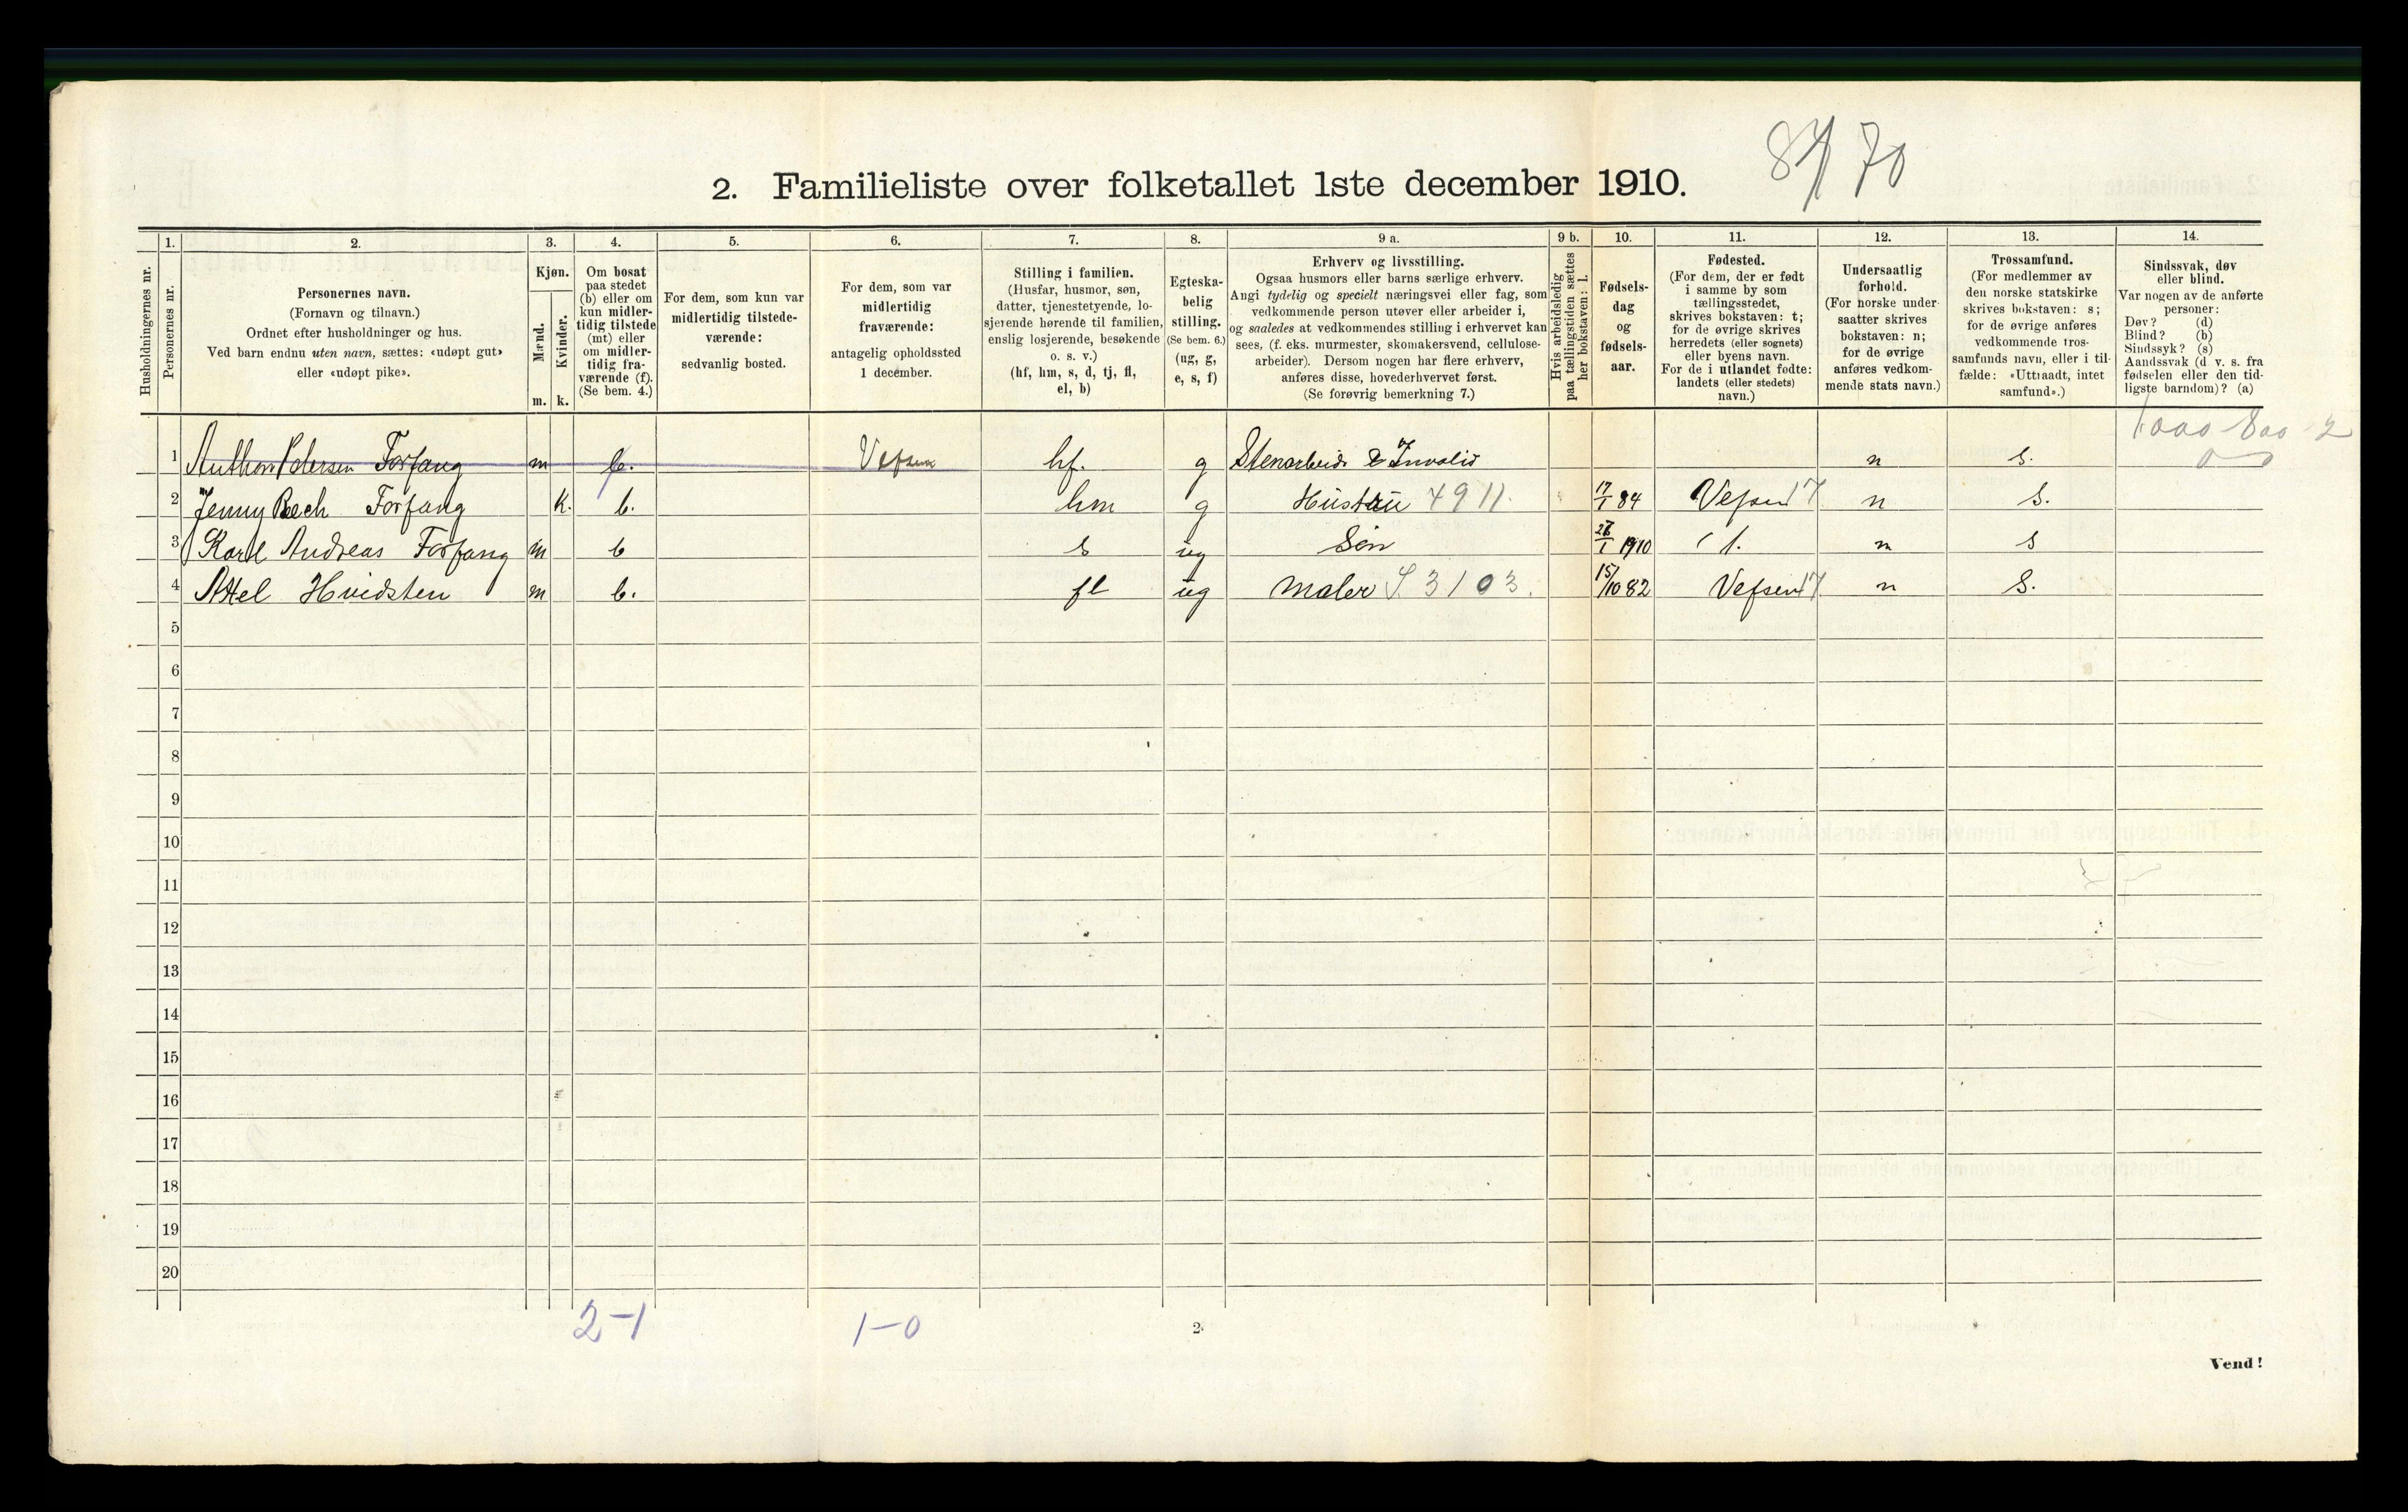 84/70
2. Familieliste over folketallet 1ste december 1910.
Husholdningernes nr.
1.
Personernes nr.
2.
Personernes navn.
(Fornavn og tilnavn.)
Ordnet efter husholdninger og hus.
Ved barn endnu uten navn, sættes: «udøpt gut»
eller «udøpt pike».
3.
Kjøn.
Mænd.
Kvinder.
m. k.
4.
Om bosat
paa stedet
(b) eller om
kun midler-
tidig tilstede
(mt) eller
om midler-
tidig fra-
værende (f).
(Se bem. 4.)
5.
For dem, som kun var
midlertidig tilstede-
værende:
sedvanlig bosted.
6.
For dem, som var
midlertidig
fraværende:
antagelig opholdssted
1 december.
7.
Stilling i familien.
(Husfar, husmor, søn,
datter, tjenestetyende, lo-
sjerende hørende til familien,
enslig losjerende, besøkende
o. s. v.)
(hf, hm, s, d, tj, fl,
el, b)
8.
Egteska-
belig
stilling.
(Se bem. 6.)
(ug, g,
e, s, f)
9 a.
Erhverv og livsstilling.
Ogsaa husmors eller barns særlige erhverv.
Angi tydelig og specielt næringsvei eller fag, som
vedkommende person utøver eller arbeider i,
og saaledes at vedkommendes stilling i erhvervet kan
sees, (f. eks. murmester, skomakersvend, cellulose-
arbeider). Dersom nogen har flere erhverv,
anføres disse, hovederhvervet først.
(Se forøvrig bemerkning 7.)
9 b.
Hvis arbeidsledig
paa tællingstiden sættes
her bokstaven: l.
10.
Fødsels-
dag
og
fødsels-
aar.
11.
Fødested.
(For dem, der er født
i samme by som
tællingsstedet,
skrives bokstaven: t;
for de øvrige skrives
herredets (eller sognets)
eller byens navn.
For de i utlandet fødte:
landets (eller stedets)
navn.)
12.
Undersaatlig
forhold.
(For norske under-
saatter skrives
bokstaven: n;
for de øvrige
anføres vedkom-
mende stats navn.)
13.
Trossamfund.
(For medlemmer av
den norske statskirke
skrives bokstaven: s;
for de øvrige anføres
vedkommende tros-
samfunds navn, eller i til-
fælde: «Uttraadt, intet
samfund».)
14.
Sindssvak, døv
eller blind.
Var nogen av de anførte
personer:
Døv? (d)
Blind? (b)
Sindssyk? (s)
Aandssvak (d. v. s. fra
fødselen eller den tid-
ligste barndom)? (a)
1000 800 - 2
0
1 Anthon Pedersen Forfang m b. Vefsen hf. g Stenarbeid & Invalid n s.
2 Jenny Bech Forfang k. b. hm g Hustru 4911. 17/1 84 Vefsen 17 n s.
3 Karl Andreas Forfang m b s ug Søn 1910 t. n s
4 Axel Hvidsten m b. fl ug Maler S 3103. 15/10 82 Vefsen 17 n S.
5
6
7
8
9
10
11
12
13
14
15
16
17
18
19
20
2-1 1-0
2
Vend!